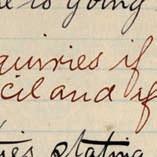 is going
quiries if
cil and if
ties stating